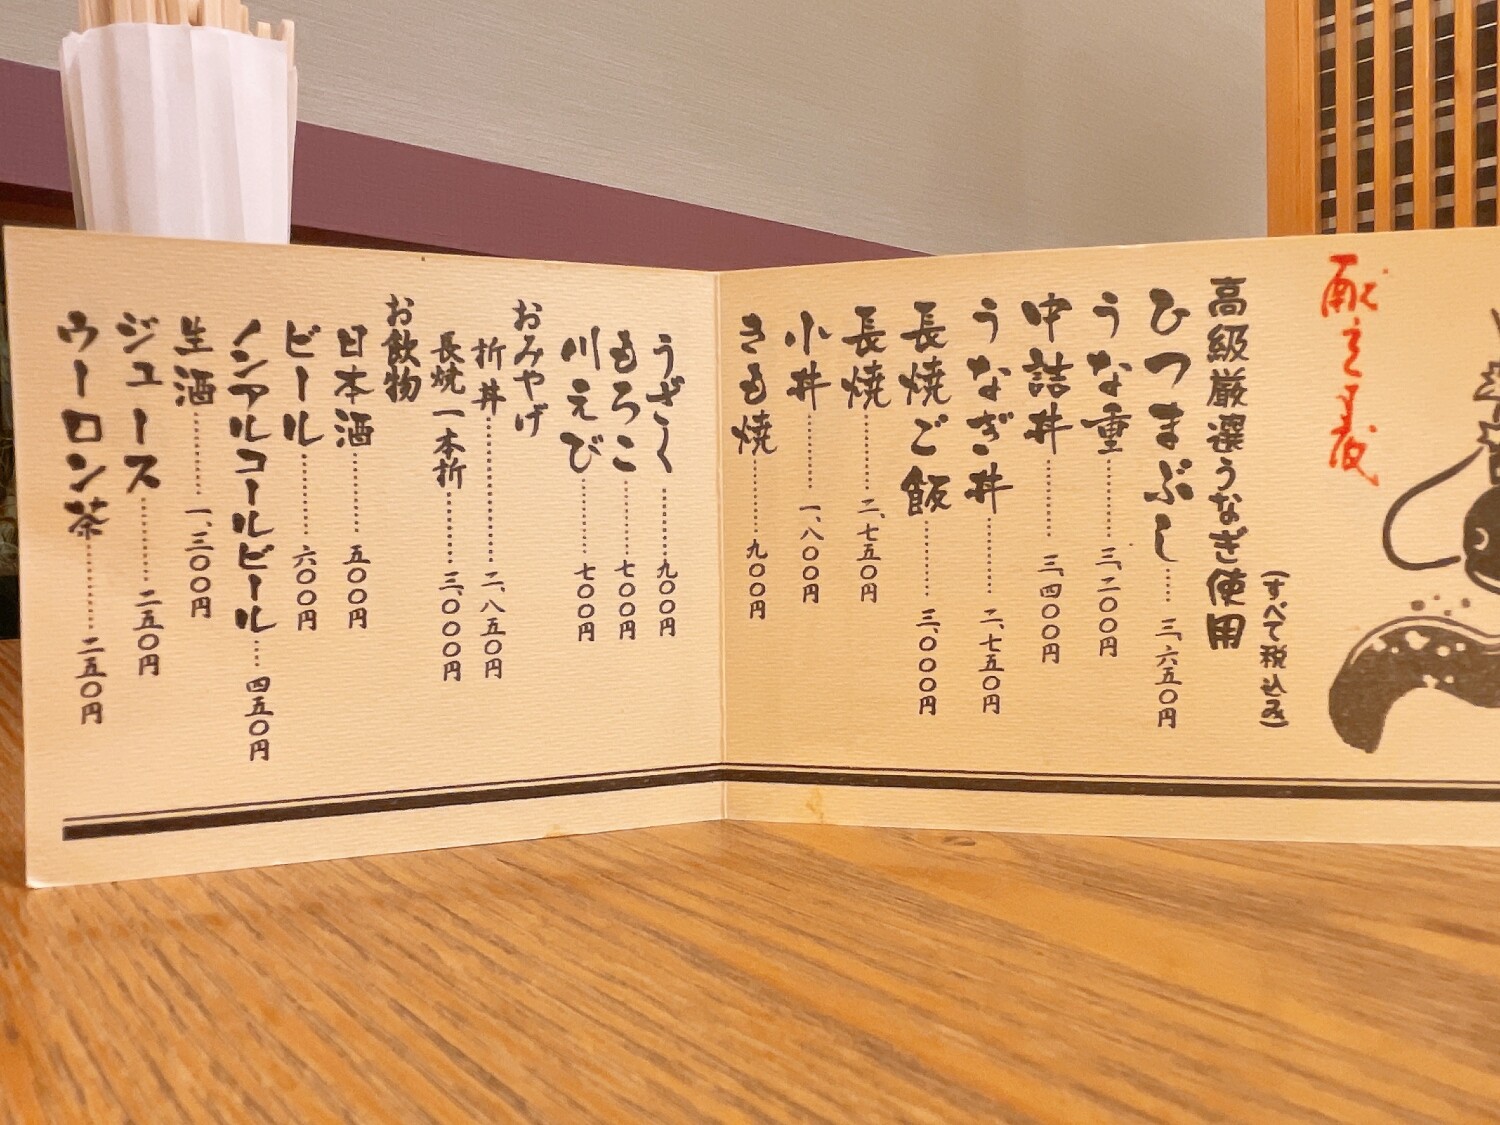 献立表
(すべて税込み)
高級厳選うなぎ使用
ひつまぶし……三、六五〇円
うな重……三、二〇〇円
中詰丼……三、四〇〇円
うなぎ丼……二、七五〇円
長焼ご飯……三、〇〇〇円
長焼……二、七五〇円
小丼……一、八〇〇円
きも焼……九〇〇円
うざく……九〇〇円
もろこ……七〇〇円
川えび……七〇〇円
おみやげ
折丼……二、八五〇円
長焼一本折……三、〇〇〇円
お飲物
日本酒……五〇〇円
ビール……六〇〇円
ノンアルコールビール……四五〇円
生酒……一、三〇〇円
ジュース……二五〇円
ウーロン茶……二五〇円